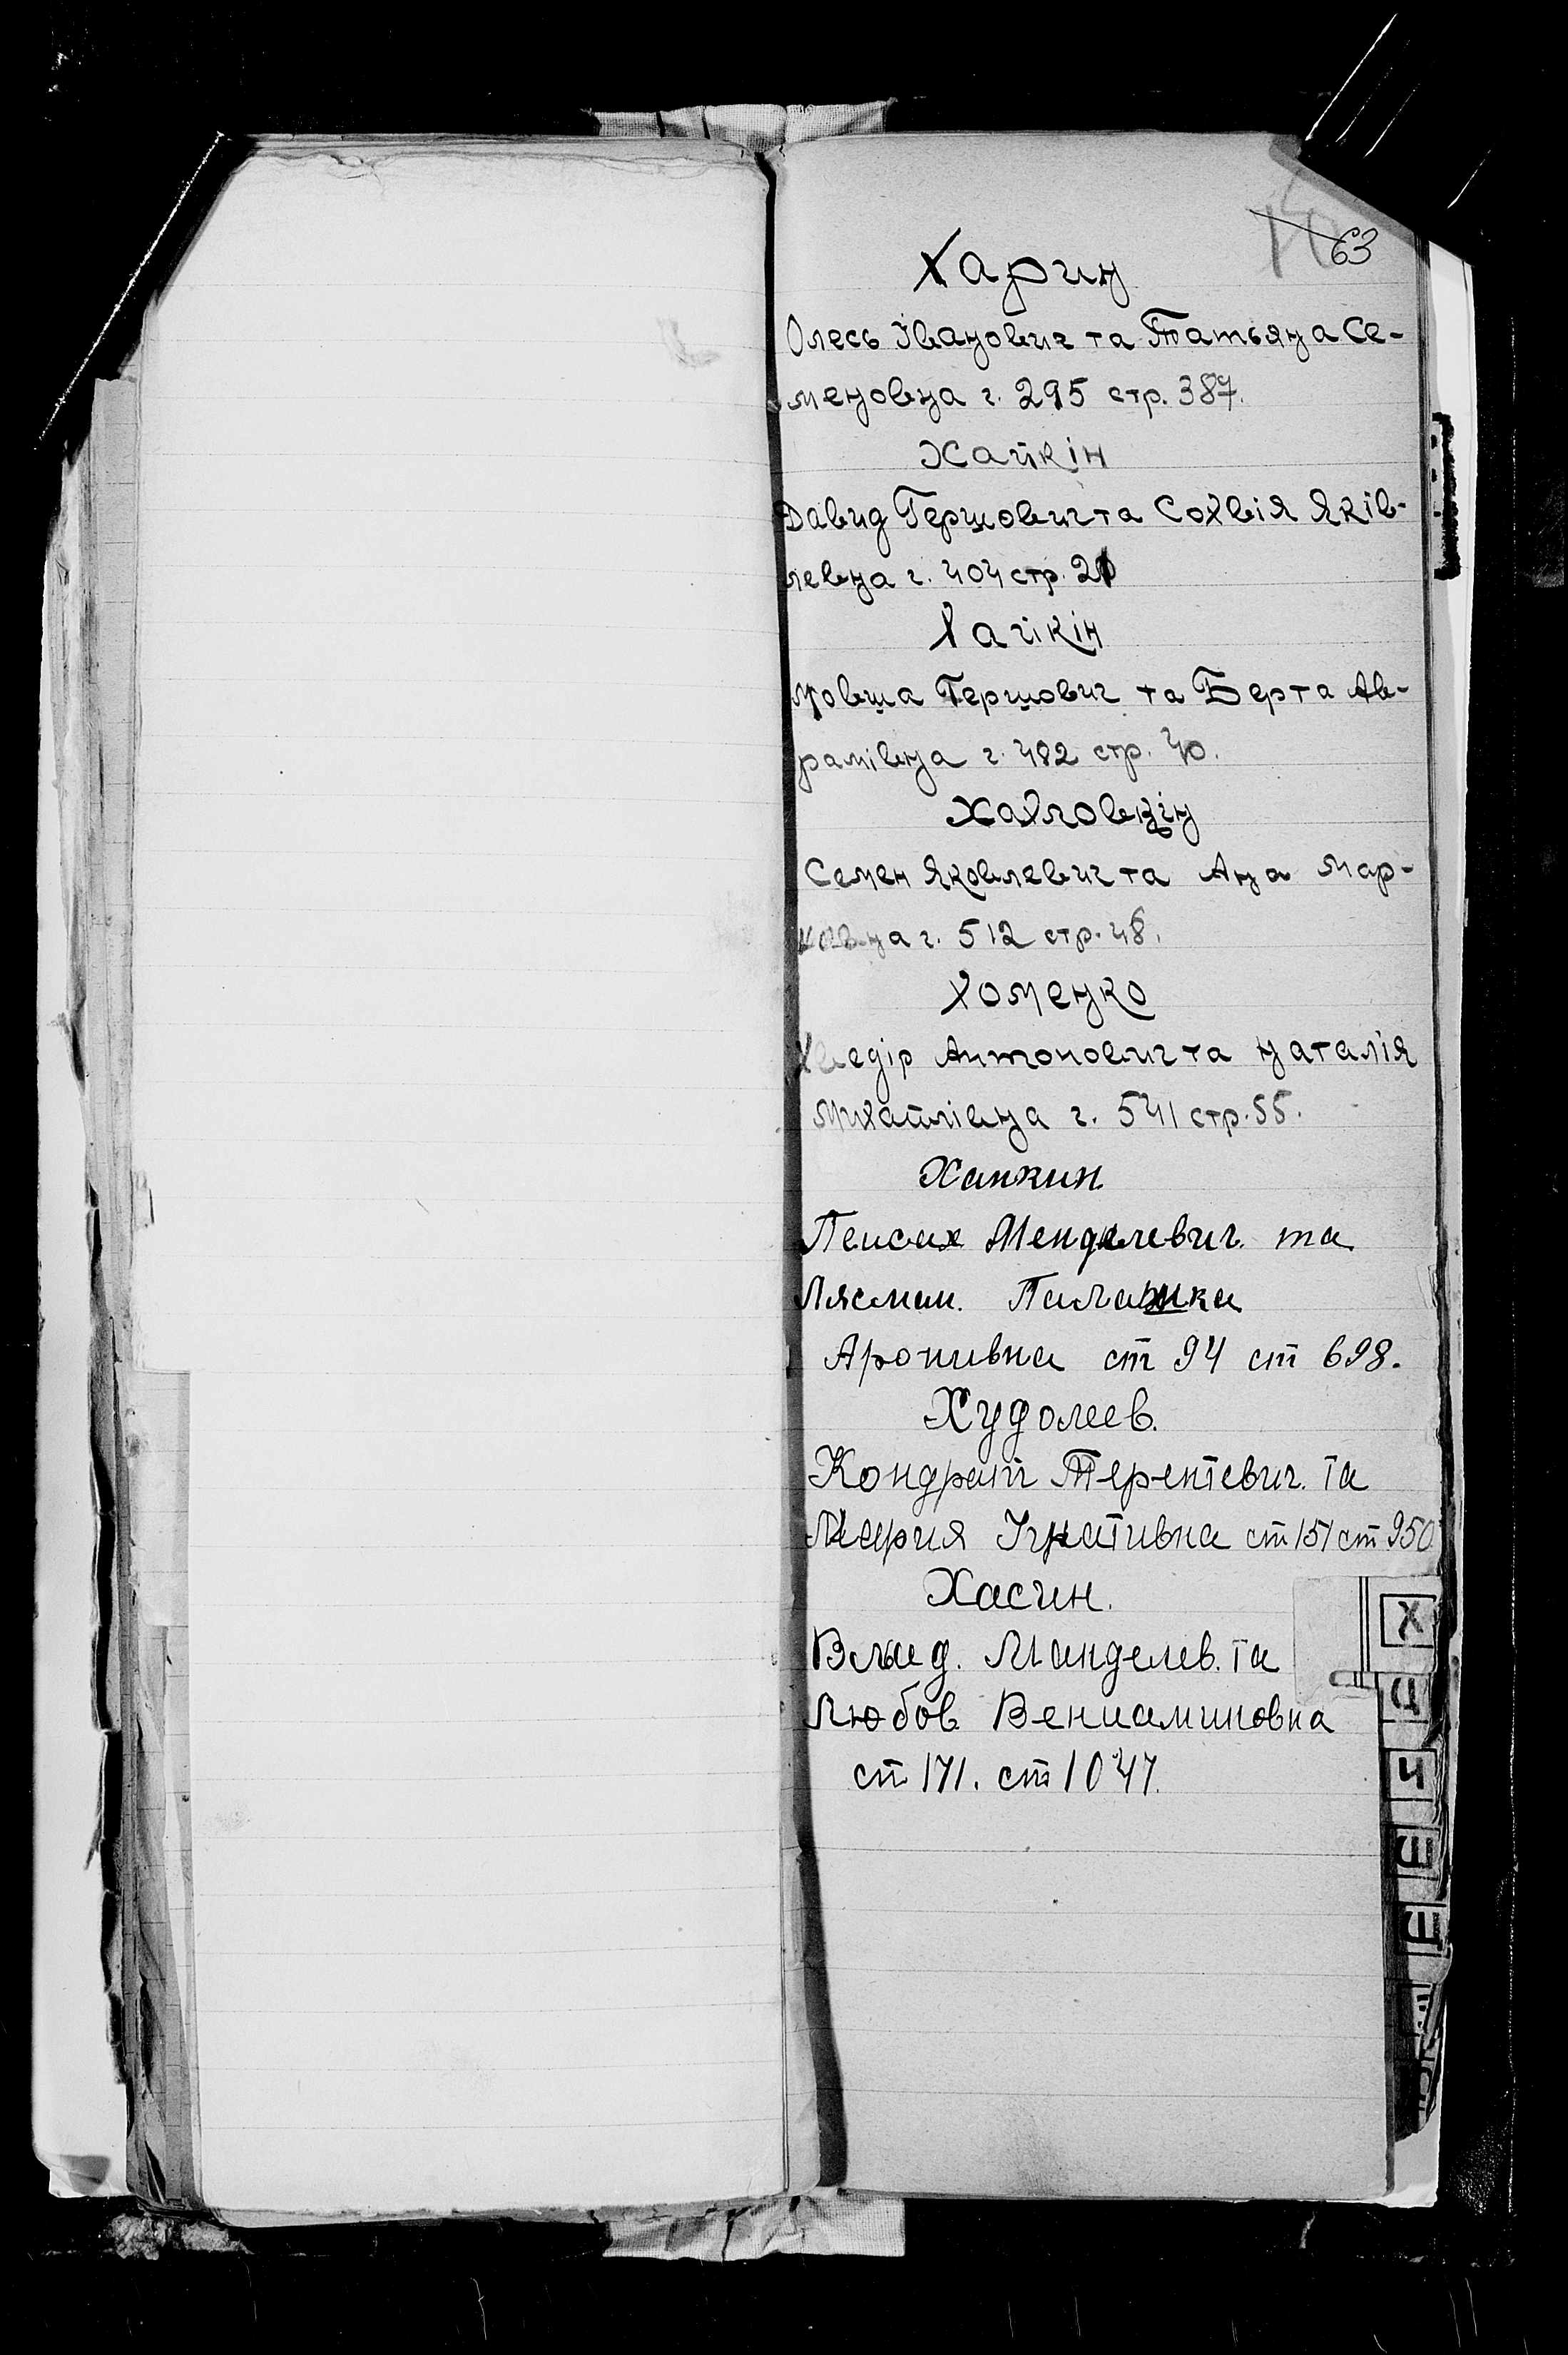 63
Харин
Олесь Іванович та Татьяна Се-
меновна г. 295 стр. 387.
Хайкін
Давид Гершович та Сохвія Яків-
левна г. 404 стр. 21
Хайкін
Мовша Гершович та Берта Ав-
рамівна г. 482 стр. 40.
Хавловзін
Семен Яковлевич та Ана Мар-
ковна г. 512 стр. 48.
Хоменко
Хведір Антонович та Наталія
Михайлівна г. 541 стр. 55.
Ханкин
Пейсах Менделевич та
Лясман.
Аронивна ст 94 ст 698.
Худолеев.
Кондрат Терентевич. та
Мария Игнативна ст 151 ст 950
Хасин.
Влад. Манделев. та
Любов Вениаминовна
ст 171. ст 1047.
Х
Ц
Ч
Ш